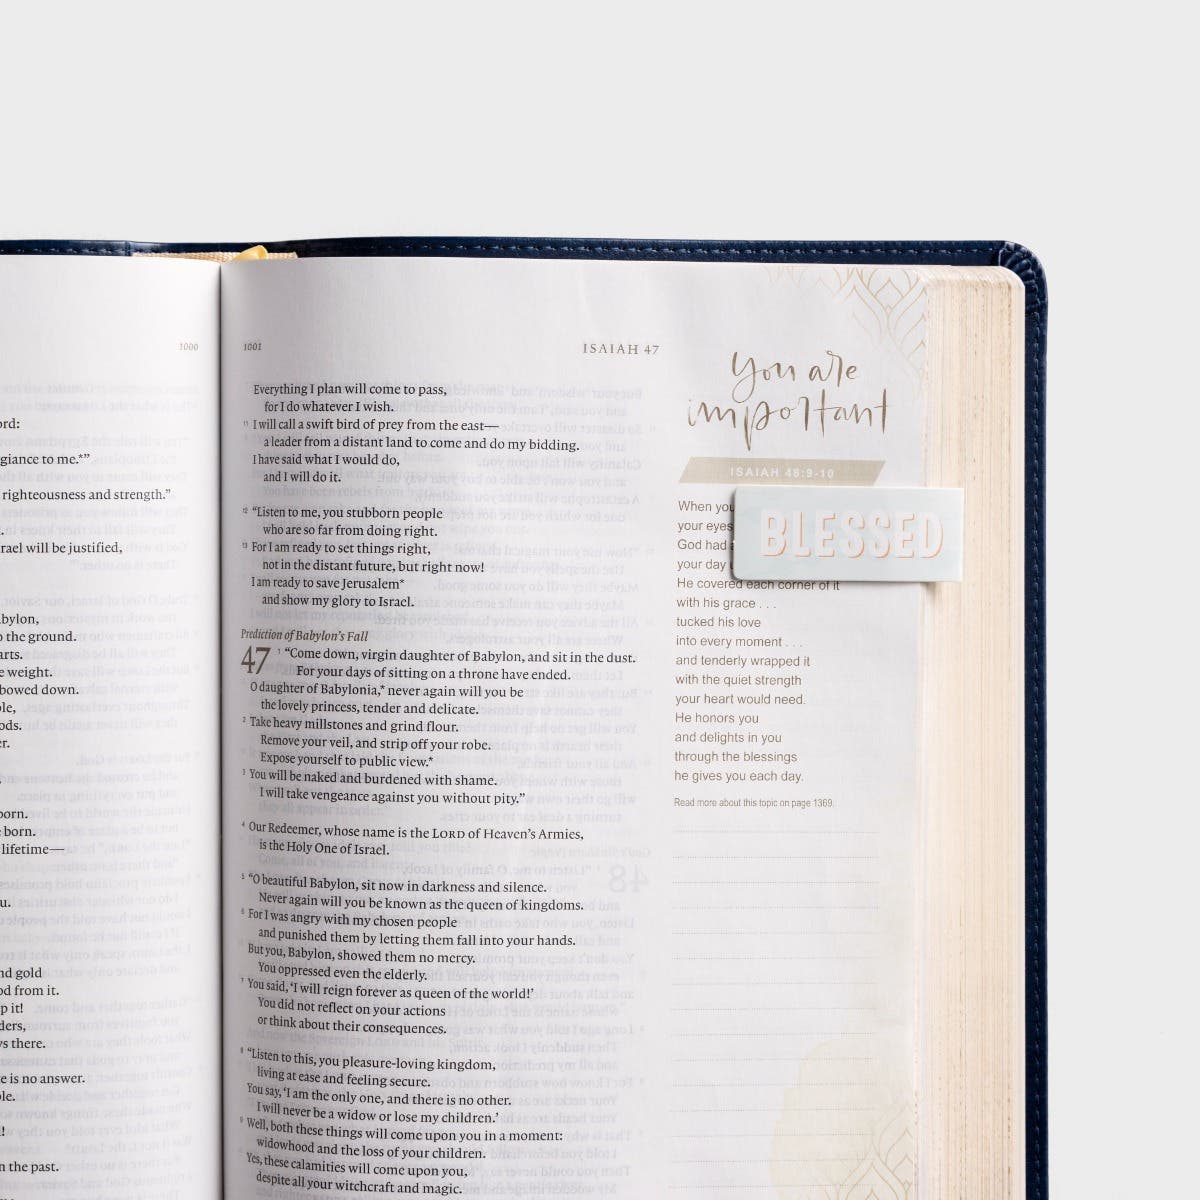 1000
ord:
giance to me.*”
righteousness and strength.”
rael will be justified,
bylon,
o the ground.
arts.
e weight.
bowed down.
ple,
ods.
er.
born.
born.
lifetime—
u.
nd gold
od from it.
p it!
ders,
ys there.
e is no answer.
ble.
!
n the past.
1001
ISAIAH 47
Everything I plan will come to pass,
for I do whatever I wish.
11 I will call a swift bird of prey from the east—
a leader from a distant land to come and do my bidding.
I have said what I would do,
and I will do it.
12 “Listen to me, you stubborn people
who are so far from doing right.
13 For I am ready to set things right,
not in the distant future, but right now!
I am ready to save Jerusalem*
and show my glory to Israel.
Prediction of Babylon’s Fall
47 1 “Come down, virgin daughter of Babylon, and sit in the dust.
For your days of sitting on a throne have ended.
O daughter of Babylonia,* never again will you be
the lovely princess, tender and delicate.
2 Take heavy millstones and grind flour.
Remove your veil, and strip off your robe.
Expose yourself to public view.*
3 You will be naked and burdened with shame.
I will take vengeance against you without pity.”
4 Our Redeemer, whose name is the LORD of Heaven’s Armies,
is the Holy One of Israel.
5 “O beautiful Babylon, sit now in darkness and silence.
Never again will you be known as the queen of kingdoms.
6 For I was angry with my chosen people
and punished them by letting them fall into your hands.
But you, Babylon, showed them no mercy.
You oppressed even the elderly.
7 You said, ‘I will reign forever as queen of the world!’
You did not reflect on your actions
or think about their consequences.
8 “Listen to this, you pleasure-loving kingdom,
living at ease and feeling secure.
You say, ‘I am the only one, and there is no other.
I will never be a widow or lose my children.’
9 Well, both these things will come upon you in a moment:
widowhood and the loss of your children.
Yes, these calamities will come upon you,
despite all your witchcraft and magic.
you are
important
ISAIAH 46:9-10
When you
your eyes
God had
your day
BLESSED
He covered each corner of it
with his grace . . .
tucked his love
into every moment . . .
and tenderly wrapped it
with the quiet strength
your heart would need.
He honors you
and delights in you
through the blessings
he gives you each day.
Read more about this topic on page 1369.